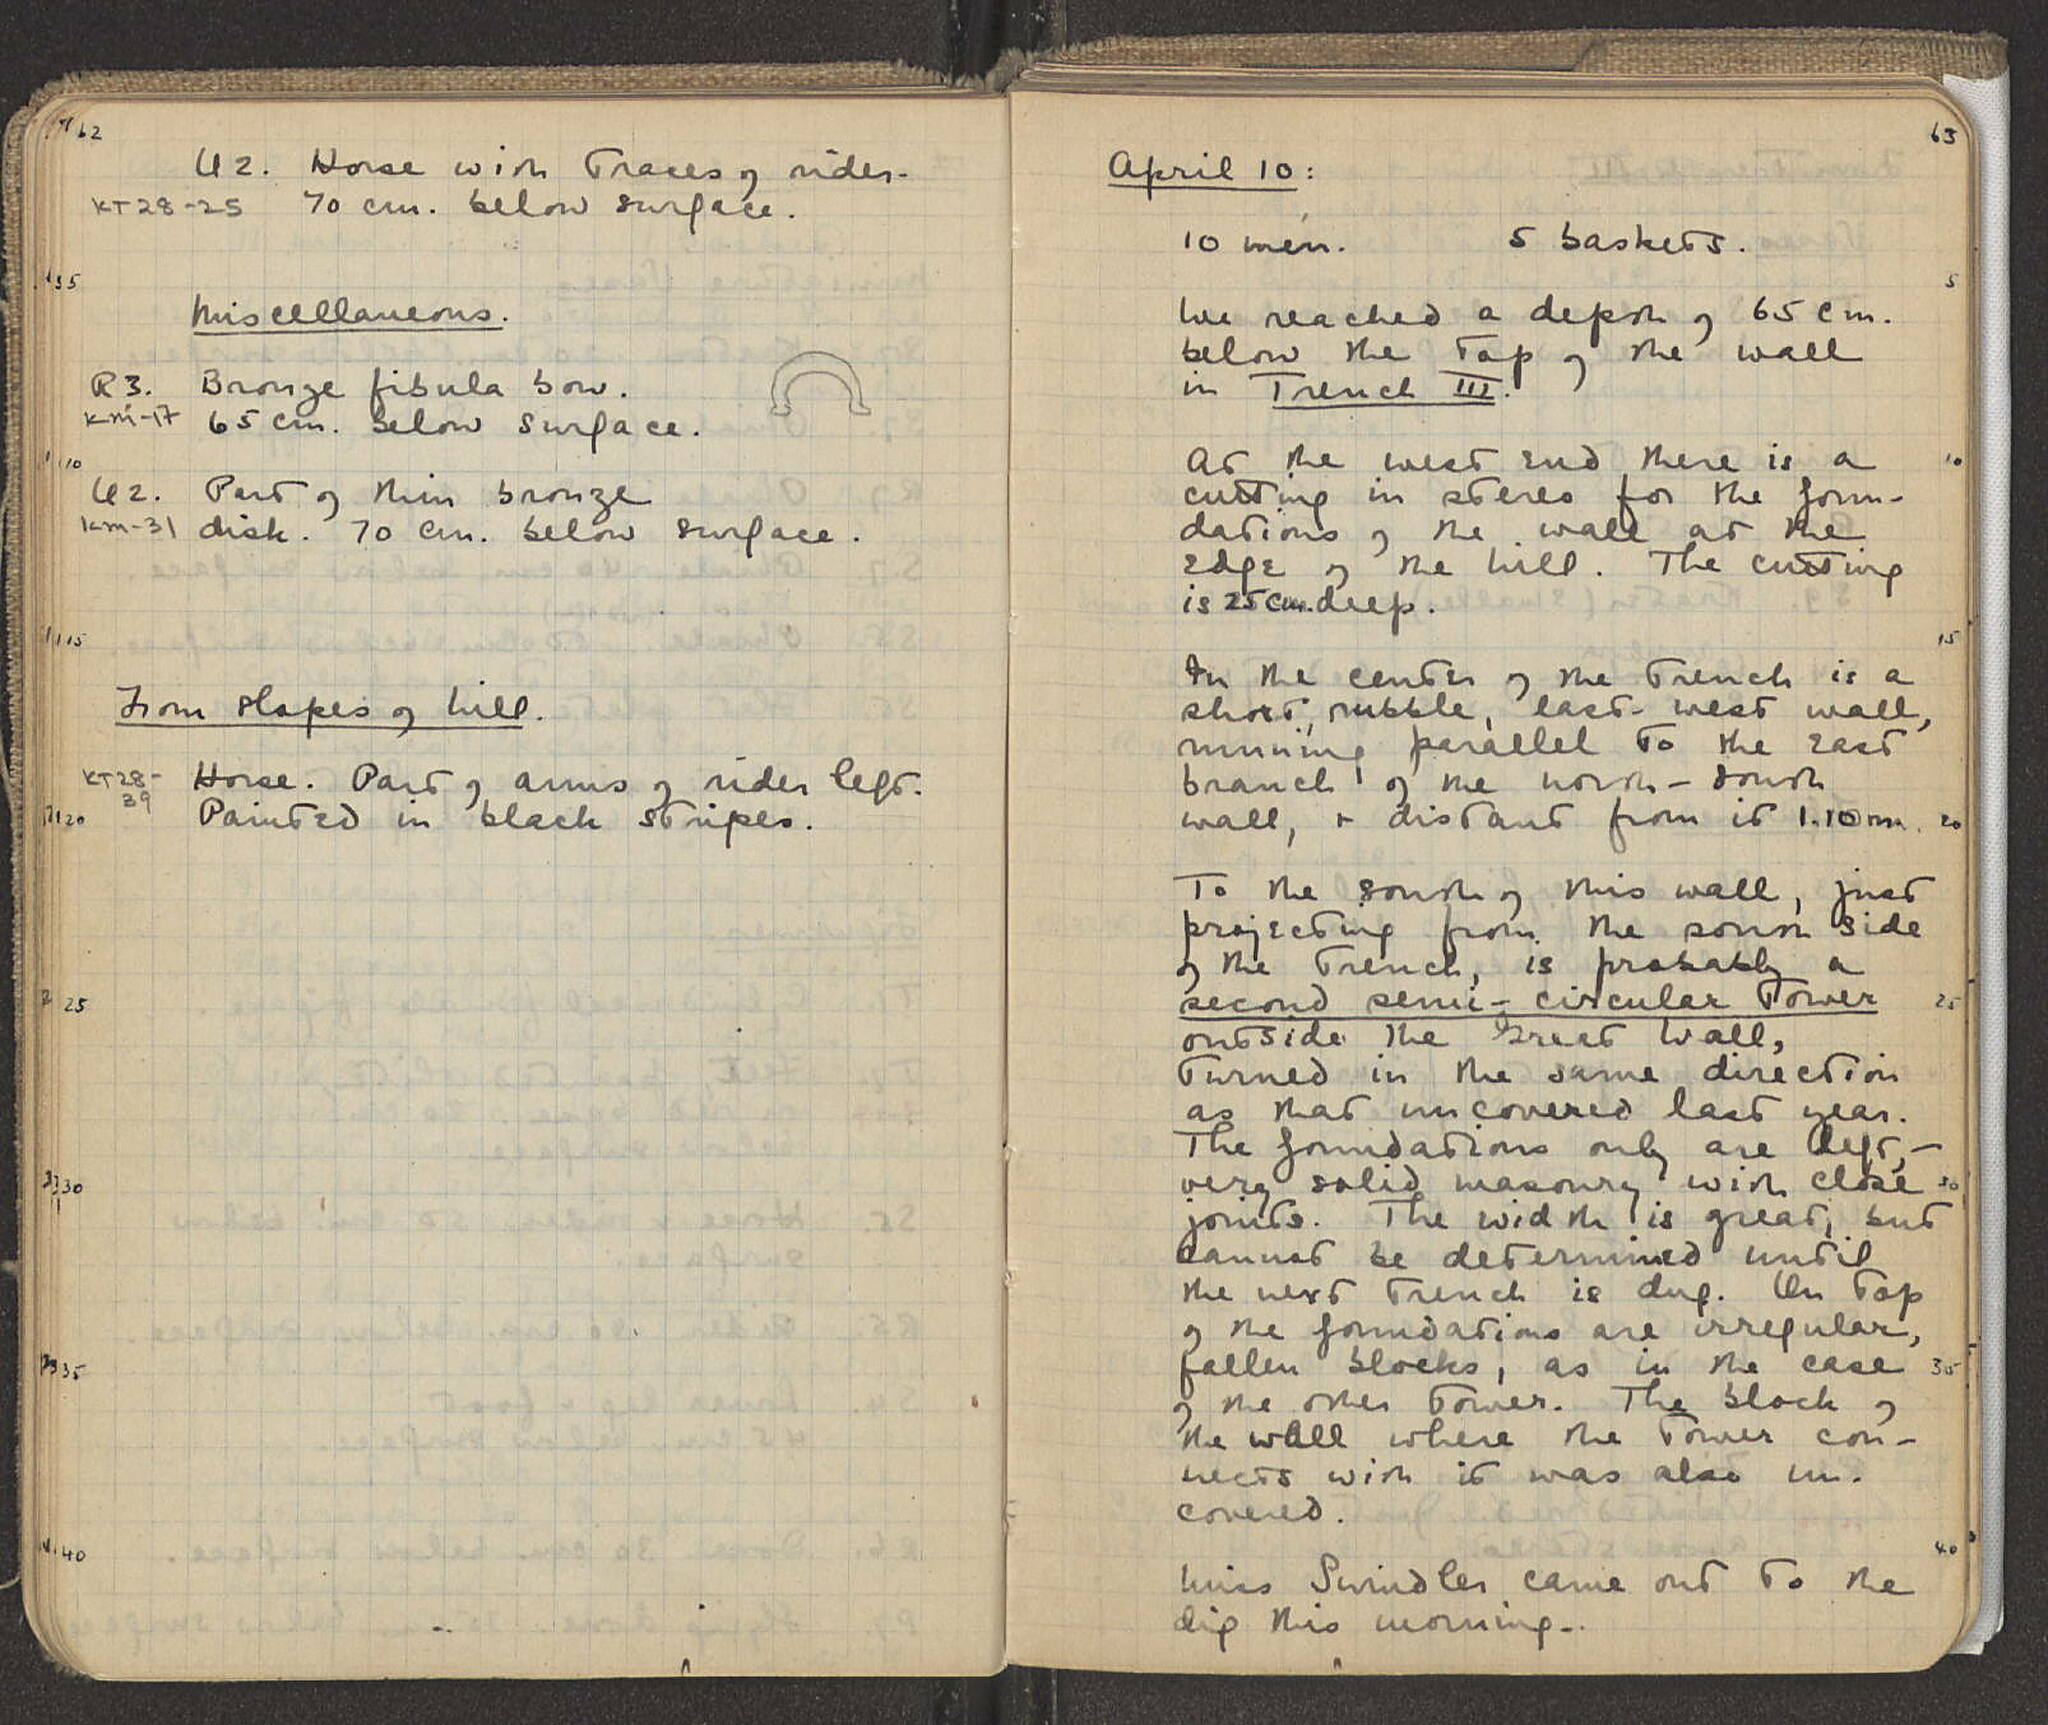 62
U2. Horse with traces of rider.
KT28-25 70 cm. below surface.
5
Miscellaneous.
R3. Bronze fibula bow.
KM-17 65 cm. below surface.
10
U2. Part of thin bronze
KM-31 disk. 70 cm. below surface.
15
From slopes of hill.
KT28-39 Horse. Part of arms of rider left.
20 Painted in black stripes.
25
30
35
40
63
April 10:
10 men. 5 baskets.
5
We reached a depth of 65 cm.
below the top of the wall
in Trench III.
At the west end there is a 10
cutting in stereo for the foun-
dations of the wall at the
edge of the hill. The cutting
is 25 cm. deep.
15
In the center of the trench is a
short, rubble, east-west wall,
running parallel to the east
branch of the north-south
wall, + distant from it 1.10 m. 20
To the south of this wall, just
projecting from the south side
of the trench, is probably a
second semi-circular tower 25
outside the Great Wall,
turned in the same direction
as that uncovered last year.
The foundations only are left,-
very solid masonry with close 30
joints. The width is great, but
cannot be determined until
the next trench is dug. On top
of the foundations are irregular,
fallen blocks, as in the case 35
of the other tower. The block of
the wall where the tower con-
nects with it was also un-
covered.
40
Miss Swindler came out to the
dig this morning.